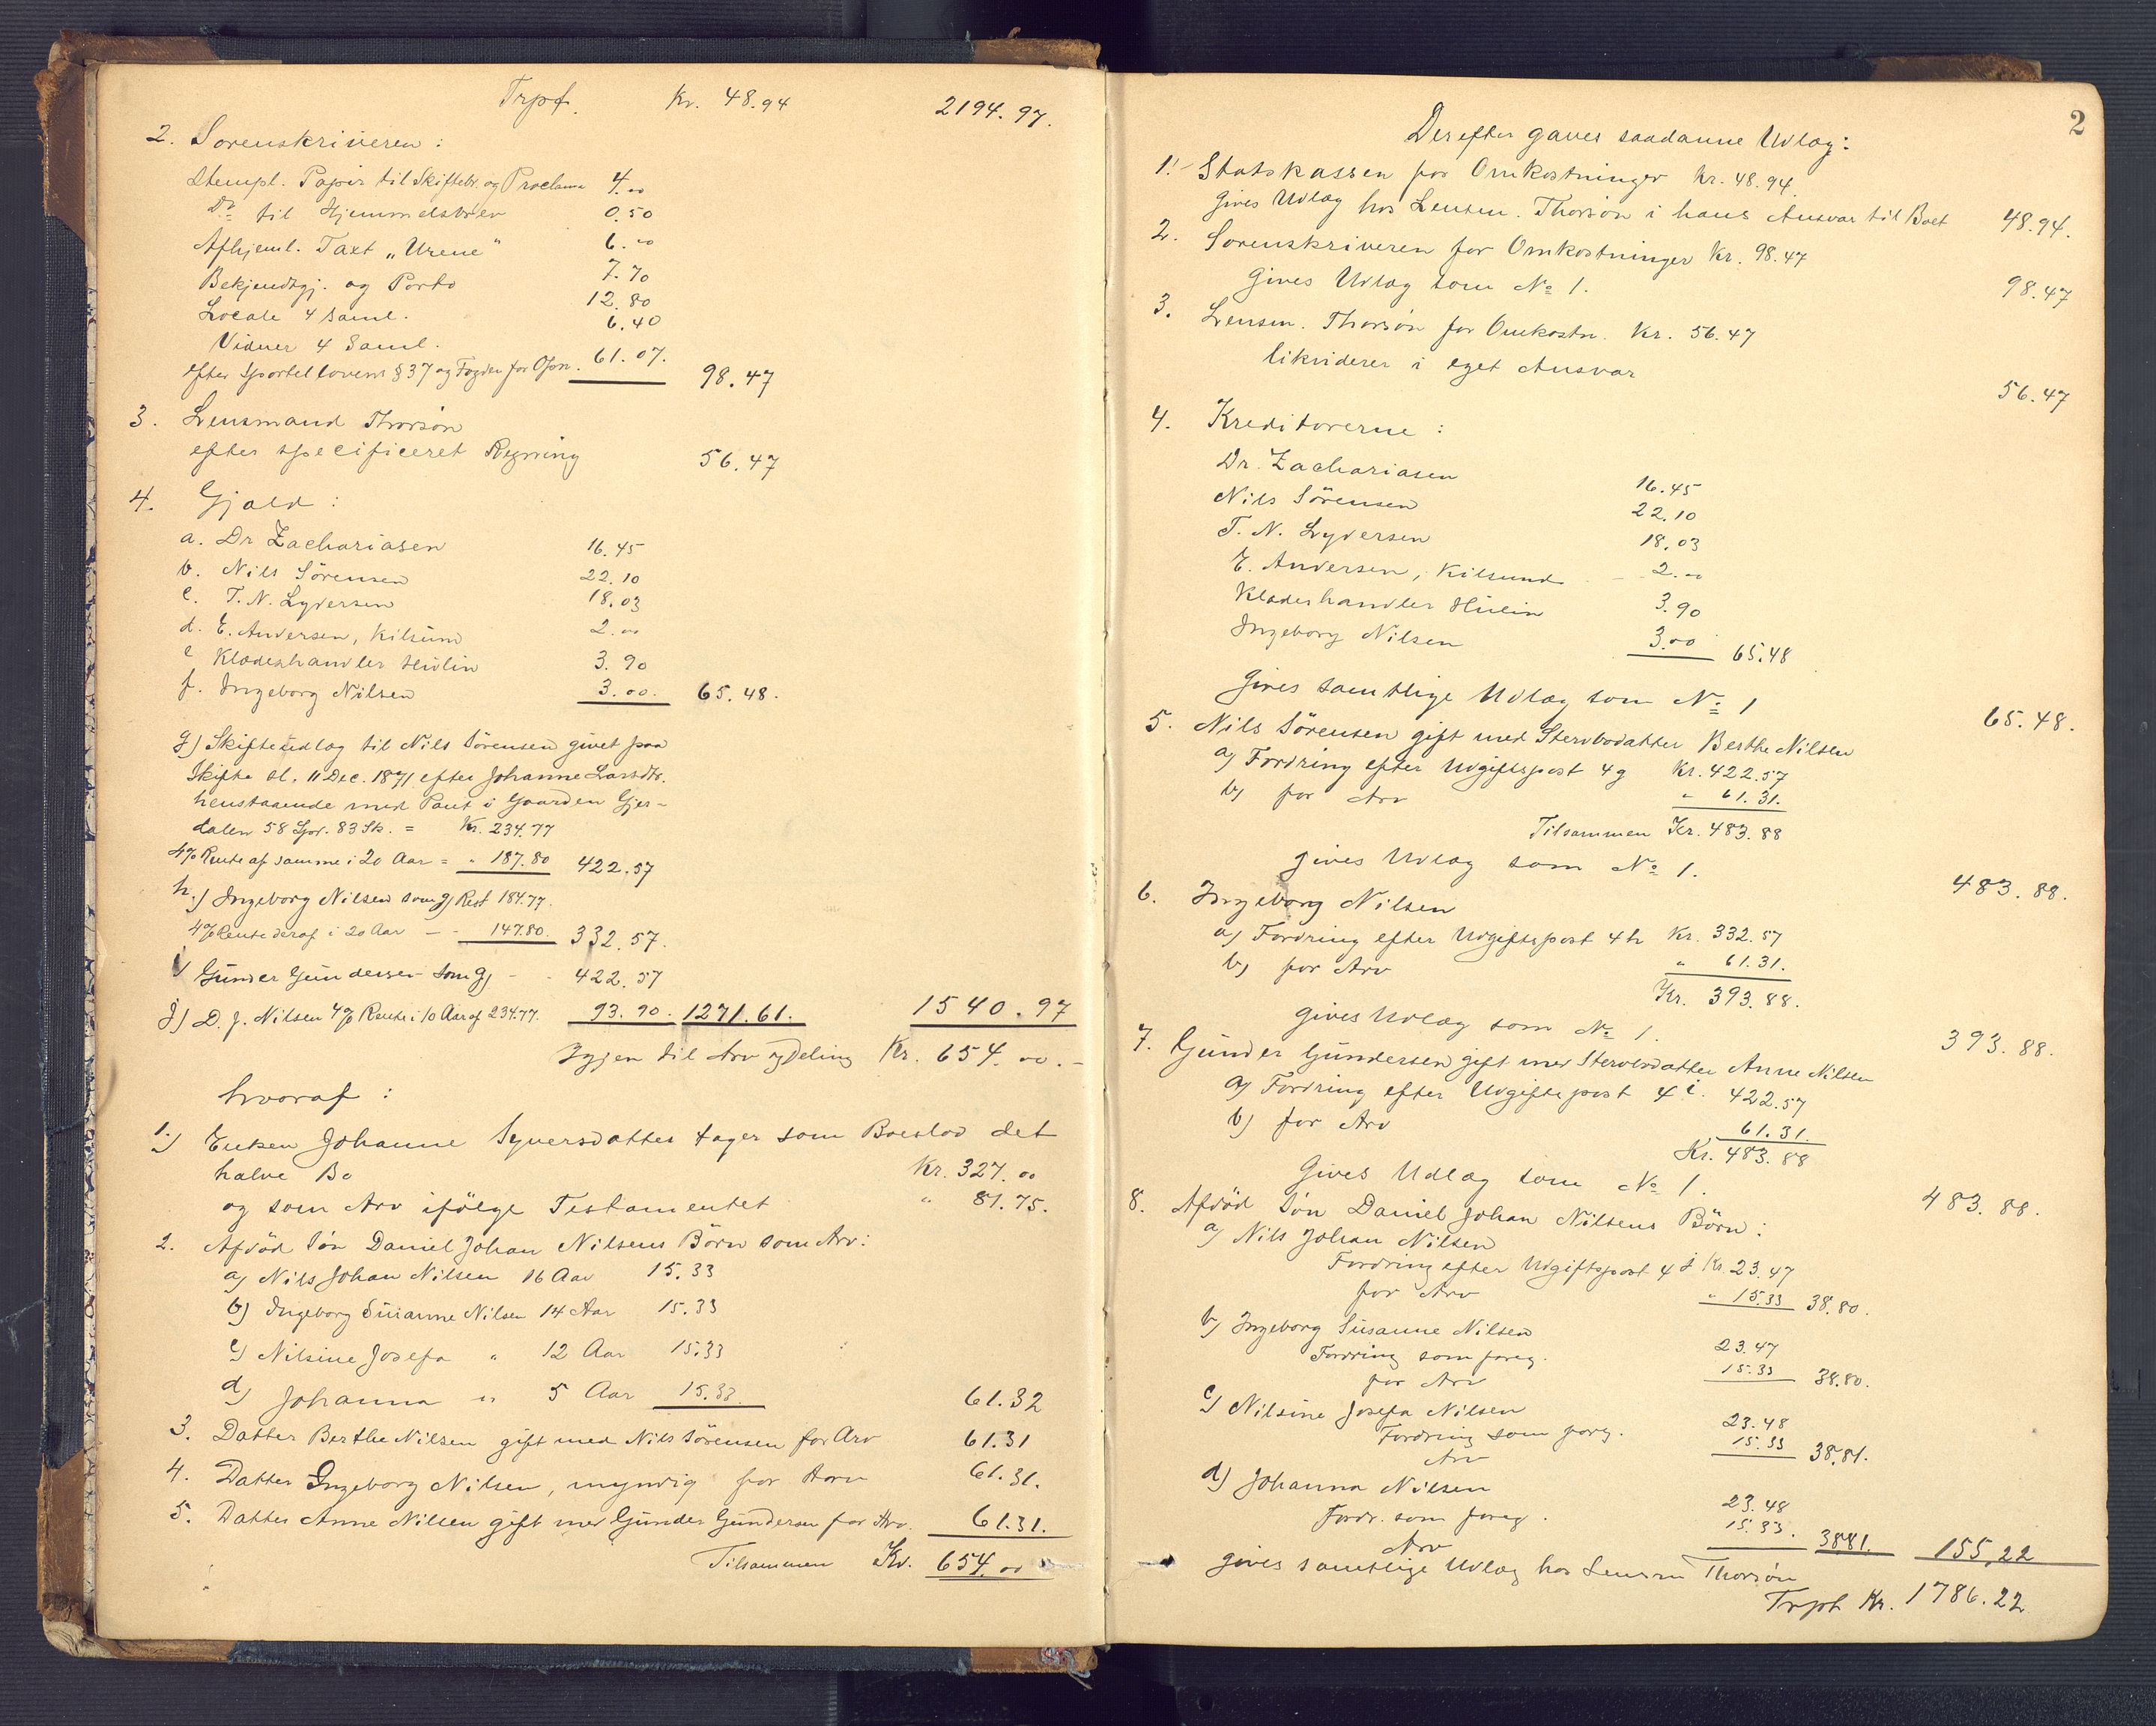 Trpt. Kr. 48.94 2194.97.
2. Sorenskriveren:
Stempl. Papir til Skiftebr. og Proclama 4.00
Do til Hjemmelsbrev 0.50
Afhjeml. Taxt „Urene" 6.00
Bekjendtgj. og Porto 7.70
Locale 4 Saml. 12.80
Vidner 4 Saml. 6.40
efter Sportellovens § 37 og Fogden for Ofvn. 61.07. 98.47
3. Lensmand Thorsøn
efter specificeret Regning 56.47
4. Gjæld:
a. Dr Zachariasen 16.45
b. Nils Sörensen 22.10
c. T. N. Lydersen 18.03
d. E. Andersen, Kilsund 2.00
e Klædeshandler Hulin 3.90
f. Ingeborg Nilsen 3.00. 65.48.
g) Skifteudlæg til Nils Sörensen givet paa
Skifte sl. 11 Dec. 1871 efter Johanne Larsdtr.
henstaaende med Pant i Gaarden Gjer-
dalen 58 Spd. 83 Sk. = Kr. 234.77
4% Rente af samme i 20 Aar = " 187.80 422.57
h.) Ingeborg Nilsen som g) Rest 184.77.
4% Rente deraf i 20 Aar — - 147.80. 332.57.
i) Günder Gündersen som g) - - 422.57
j) D. J. Nilsen 4% Rente i 10 Aar af 234.77. 93.90. 1271.61. 1540.97
Igjen til Arv og Deling Kr. 654.00.-
hvoraf:
1.) Enken Johanne Syversdatter tager som Boeslod det
halve Bo Kr. 327.00
og som Arv ifölge Testamentet " 81.75.
2. Afdöd Sön Daniel Johan Nilsens Börn som Arv:
a) Nils Johan Nilsen 16 Aar 15.33
b) Ingeborg Susanne Nilsen 14 Aar 15.33
c) Nilsine Josefa " 12 Aar 15.33
d) Johanna " 5 Aar 15.33. 61.32
3. Datter Berthe Nilsen gift med Nils Sörensen for Arv 61.31
4. Datter Ingeborg Nilsen, myndig for Arv 61.31.
5. Datter Anne Nilsen gift med Günder Gündersen for Arv. 61.31.
Tilsammen Kr. 654.00
2
Derefter gaves saadanne Udlæg:
1. Statskassen for Omkostninger Kr. 48.94.
Gives Udlæg hos Lensm. Thorsøn i hans Ansvar til Boet 48.94.
2. Sorenskriveren for Omkostninger Kr. 98.47
Gives Udlæg som No 1. 98.47
3. Lensm. Thorsøn for Omkostn. Kr. 56.47
likviderer i eget Ansvar 56.47
4. Kreditorerne:
Dr. Zachariasen 16.45
Nils Sörensen 22.10
T. N. Lydersen 18.03
E. Andersen, Kilsund 2.00
Klædeshandler Hulin 3.90
Ingeborg Nilsen 3.00 65.48
Gives samtlige Udlæg som No 1 65.48.
5. Nils Sörensen gift med Stervbodatter Berthe Nilsen
a) Fordring efter Udgiftspost 4 g Kr. 422.57
b) for Arv " 61.31.
Tilsammen Kr. 483.88
gives Udlæg som No 1. 483.88.
6. Ingeborg Nilsen
a) Fordring efter Udgiftspost 4 h Kr. 332.57
b) for Arv " 61.31.
Kr. 393.88.
gives Udlæg som No 1. 393.88.
7. Günder Gündersen gift med Stervbodatter Anne Nilsen
a) Fordring efter Udgiftspost 4 i. 422.57
b) for Arv 61.31.
Kr. 483.88
Gives Udlæg som No 1. 483.88.
8. Afdöd Sön Daniel Johan Nilsens Börn:
a) Nils Johan Nilsen
Fordring efter Udgiftspost 4 j Kr. 23.47
for Arv " 15.33 38.80.
b) Ingeborg Susanne Nilsen
Fordring som foreg. 23.47
for Arv 15.33 38.80.
c) Nilsine Josefa Nilsen
Fordring som foreg. 23.48
Arv 15.33 38.81.
d) Johanna Nilsen
Fordr. som foreg. 23.48
Arv 15.33. 38.81. 155.22
gives samtlige Udlæg hos Lensm Thorsøn
Trpt Kr. 1786.22